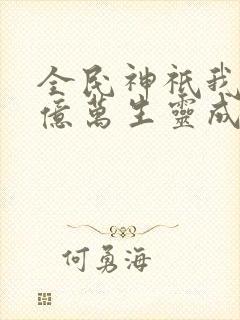 全民神祇我
億萬生靈成
何勇海